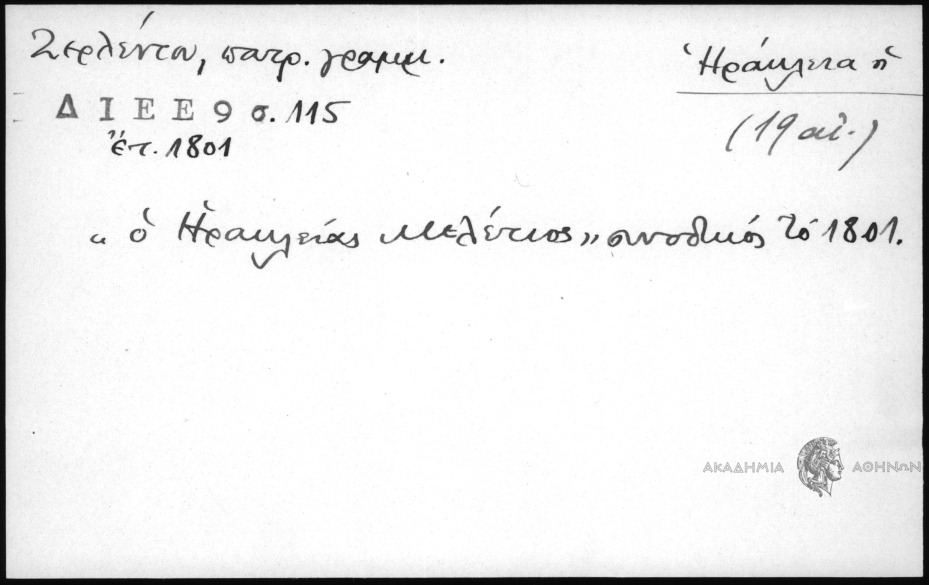 Ζερλέντου, πατρ. γραμμ.
Ἡράκλεια ἡ
Δ Ι Ε Ε 9 σ. 115
(19 αἰ.)
ἔτ. 1801
“ ὁ Ἡρακλείας Μελέτιος” συνοδικός τό 1801.
ΑΚΑΔΗΜΙΑ ΑΘΗΝΩΝ